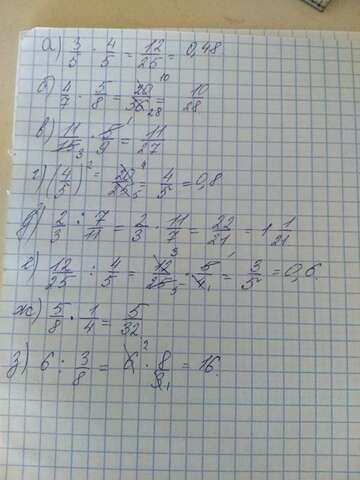 а) 3/5 · 4/5 = 12/25 = 0,48
б) 4/7 · 5/8 = 20/56 10/28 = 10/28
в) 11/15 3 · 5/9 1 = 11/27
г) (4/5)² = 20/25 4/5 = 4/5 = 0,8
д) 2/3 : 7/11 = 2/3 · 11/7 = 22/21 = 1 1/21
е) 12/25 : 4/5 = 12/25 3/5 · 5/4 1/1 = 3/5 = 0,6.
ж) 5/8 · 1/4 = 5/32
з) 6 : 3/8 = 6 2 · 8/3 1 = 16.